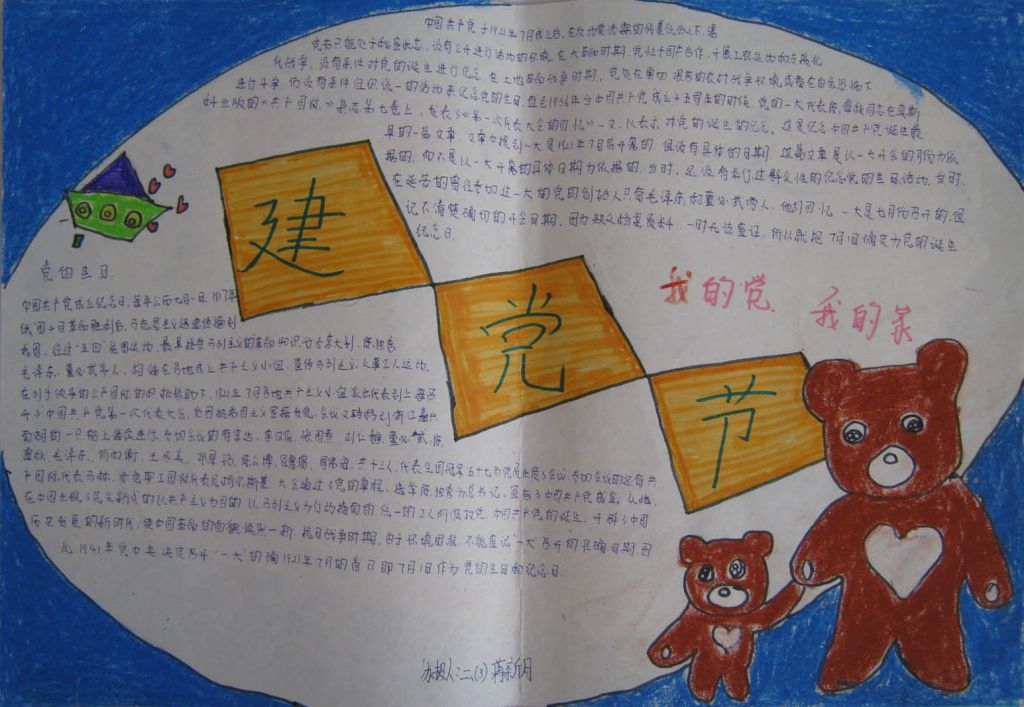 中国共产党于1921年7月成立后,在反动
党只能处于秘密状态,没有公开进行活动的环境。在大革命时期,党忙于国共合作、开展工农运动和支援北
代战争,没有条件对党的诞生进行纪念。在土地革命战争时期,党处在
进行斗争,仍没有条件组织统一的活动来纪念党的生日。直至1936年
大会的回忆》一文,以表示对党的诞生的纪念。这是纪念中国共产党诞生最
早的一篇文章。文章中提到一大是1921年7月底开幕的,但没有具体的日期。这篇文章是以一大开会的月份为依
据的,而不是以一大开幕的具体日期为依据的。当时,还没有进行过群众性的纪念党的生日活动。当时,
在延安的曾经参加过一大的党的创始人只有毛泽东和董必武两人。他们回忆一大是七月份召开的,但
记不清楚确切的开会日期。因为缺乏档案资料,一时无法查证,所以就把7月1日确定为党的诞生
纪念日。
建
党
节
我的党 我的家
党的生日
中国共产党成立纪念日,每年公历七月一日。1917年
俄国十月革命胜利后,马克思主义迅速传播到
我国。经过“五四”爱国运动,最早接受马列主义的革命知识分子李大钊、陈独秀、
毛泽东、董必武等人,相继在各地成立共产主义小组,宣传马列主义,从事工人运动。
在列宁领导的共产国际的积极帮助下,1921年7月各地共产主义小组派出代表到上海召
开了中国共产党第一次代表大会。
南湖的一只船上继续进行。参加会议的有李达、李汉俊、张国焘、刘仁静、董必武、陈
潭秋、毛泽东、何叔衡、王尽美、邓恩铭、陈公博、
产国际代表马林、赤色职工国际代表尼柯尔斯基。大会通过了党的章程,选举陈独秀为总书记,宣布了中国共产党成立。从此,
在中国出现了完全新式的以共产主义为目的、以马列主义为行动指南的统一的工人阶级政党。中国共产党的诞生,开辟了中国
历史发展的新时代,使中国革命的面貌焕然一新。抗日战争时期,由于环境困难,不能查记“一大”召开的准确日期,因
此1941年党中央决定召开“一大”的1921年7月的首日即7月1日作为党的生日和纪念日。
办报人:二、(3)蒋新月